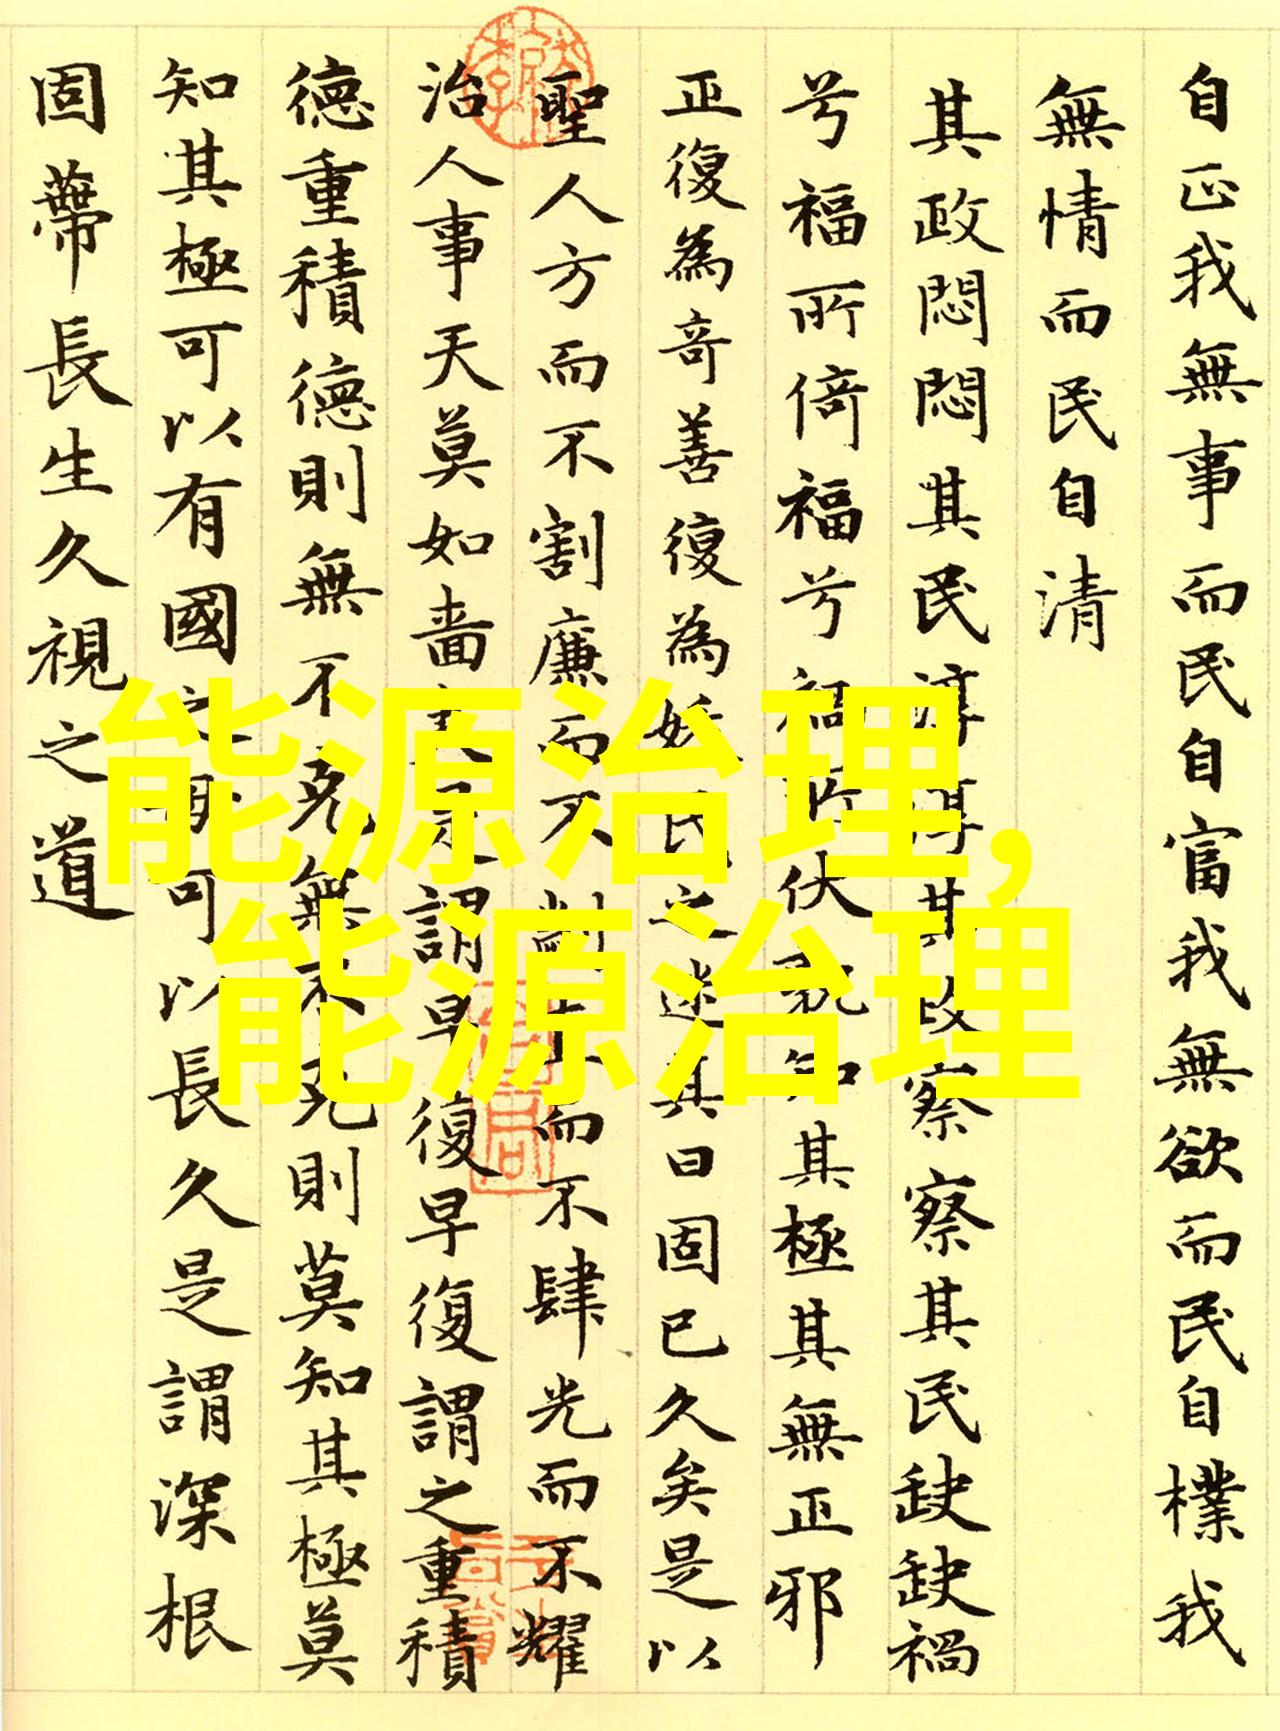 自正我無事而民自富我無欲而民自樸我
無情而民自清
其政悶悶其民淳淳其政察察其民缺缺禍
兮福所倚福兮禍所伏孰知其極其無正邪
正復為奇善復為妖民之迷其日固已久矣是以
聖人方而不割廉而不劌直而不肆光而不耀
治人事天莫如嗇夫是謂早復早復謂之重積
德重積德則無不克無不克則莫知其極莫
知其極可以有國之母可以長久是謂深根
固蔕長生久視之道
能源治理,
能源治理